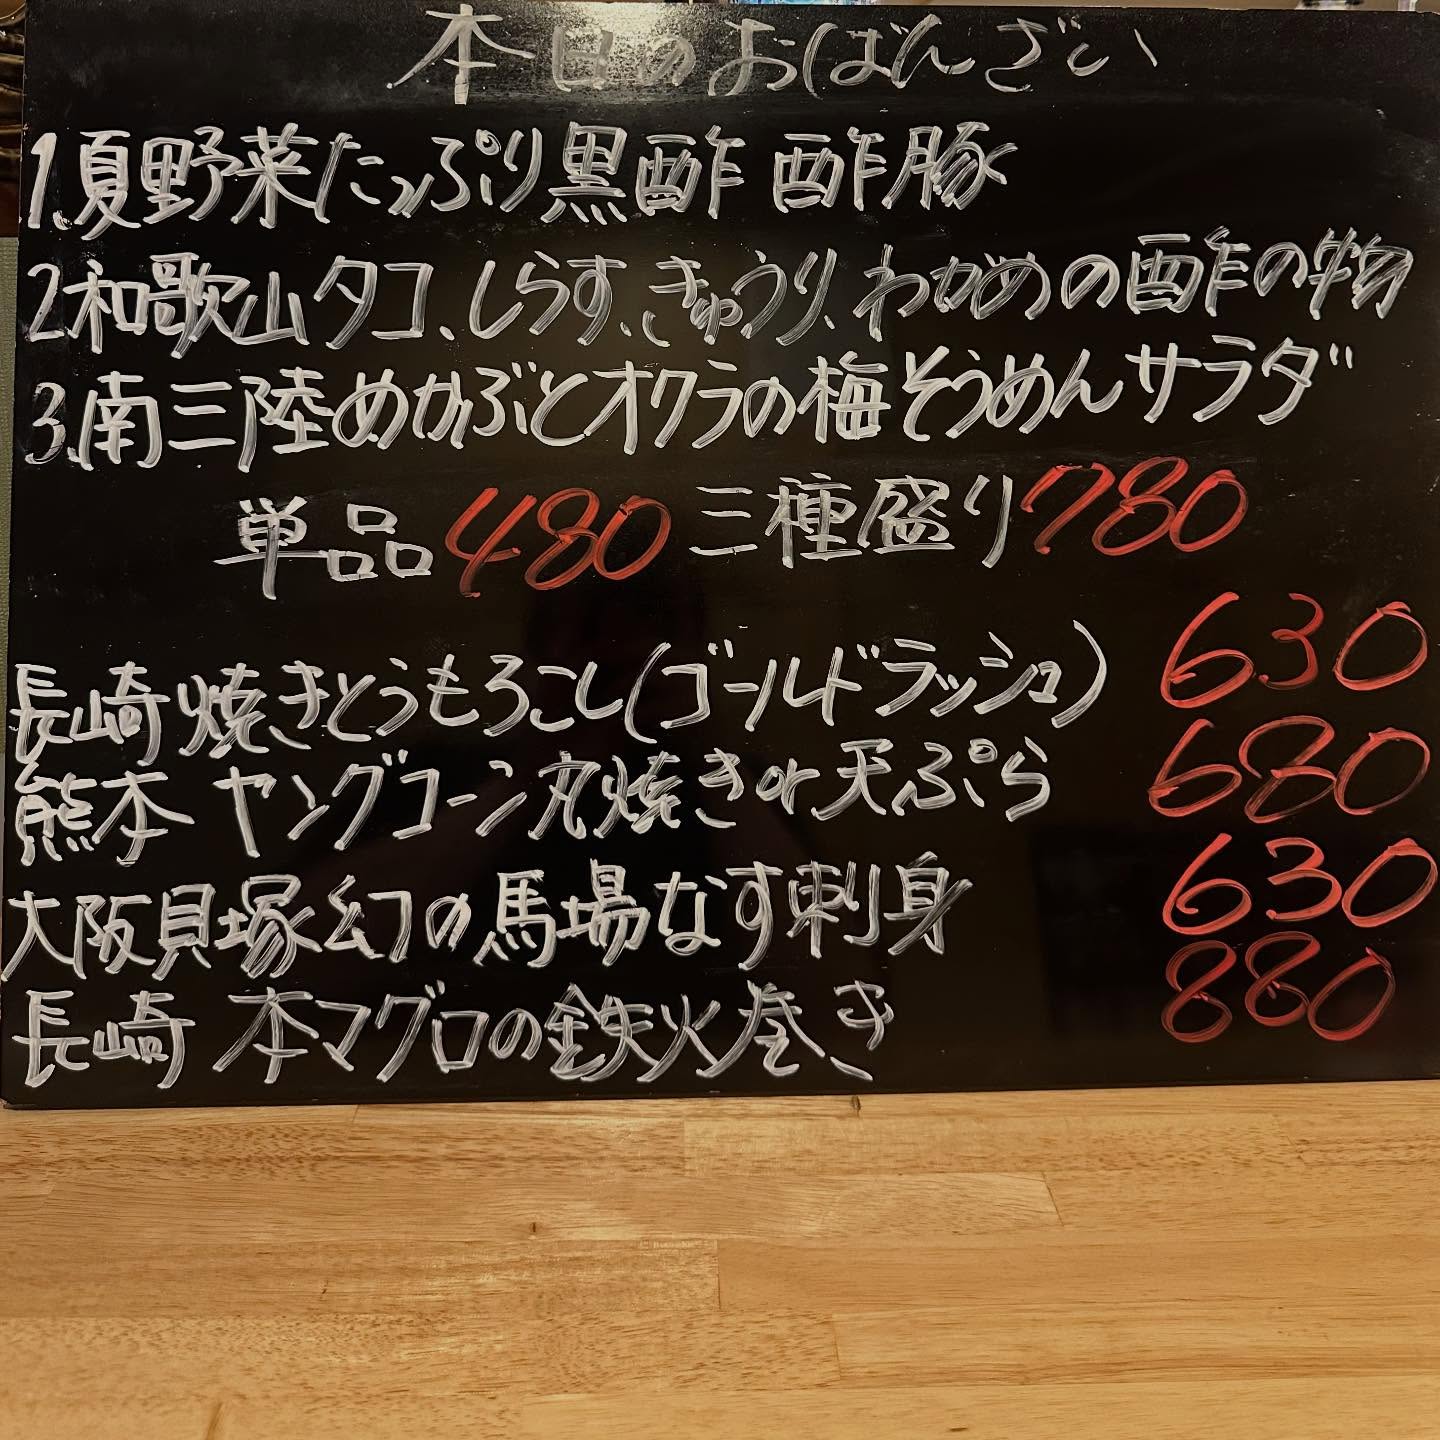 本日のおばんざい
1.夏野菜たっぷり黒酢酢豚
2.和歌山タコ、しらす、きゅうり、わかめの酢の物
3.南三陸めかぶとオクラの梅そうめんサラダ
単品480 三種盛り780
長崎焼きとうもろこし(ゴールドラッシュ) 630
熊本 ヤングコーン丸焼きor天ぷら 680
大阪貝塚幻の馬場なす刺身 630
長崎 本マグロの鉄火巻き 880